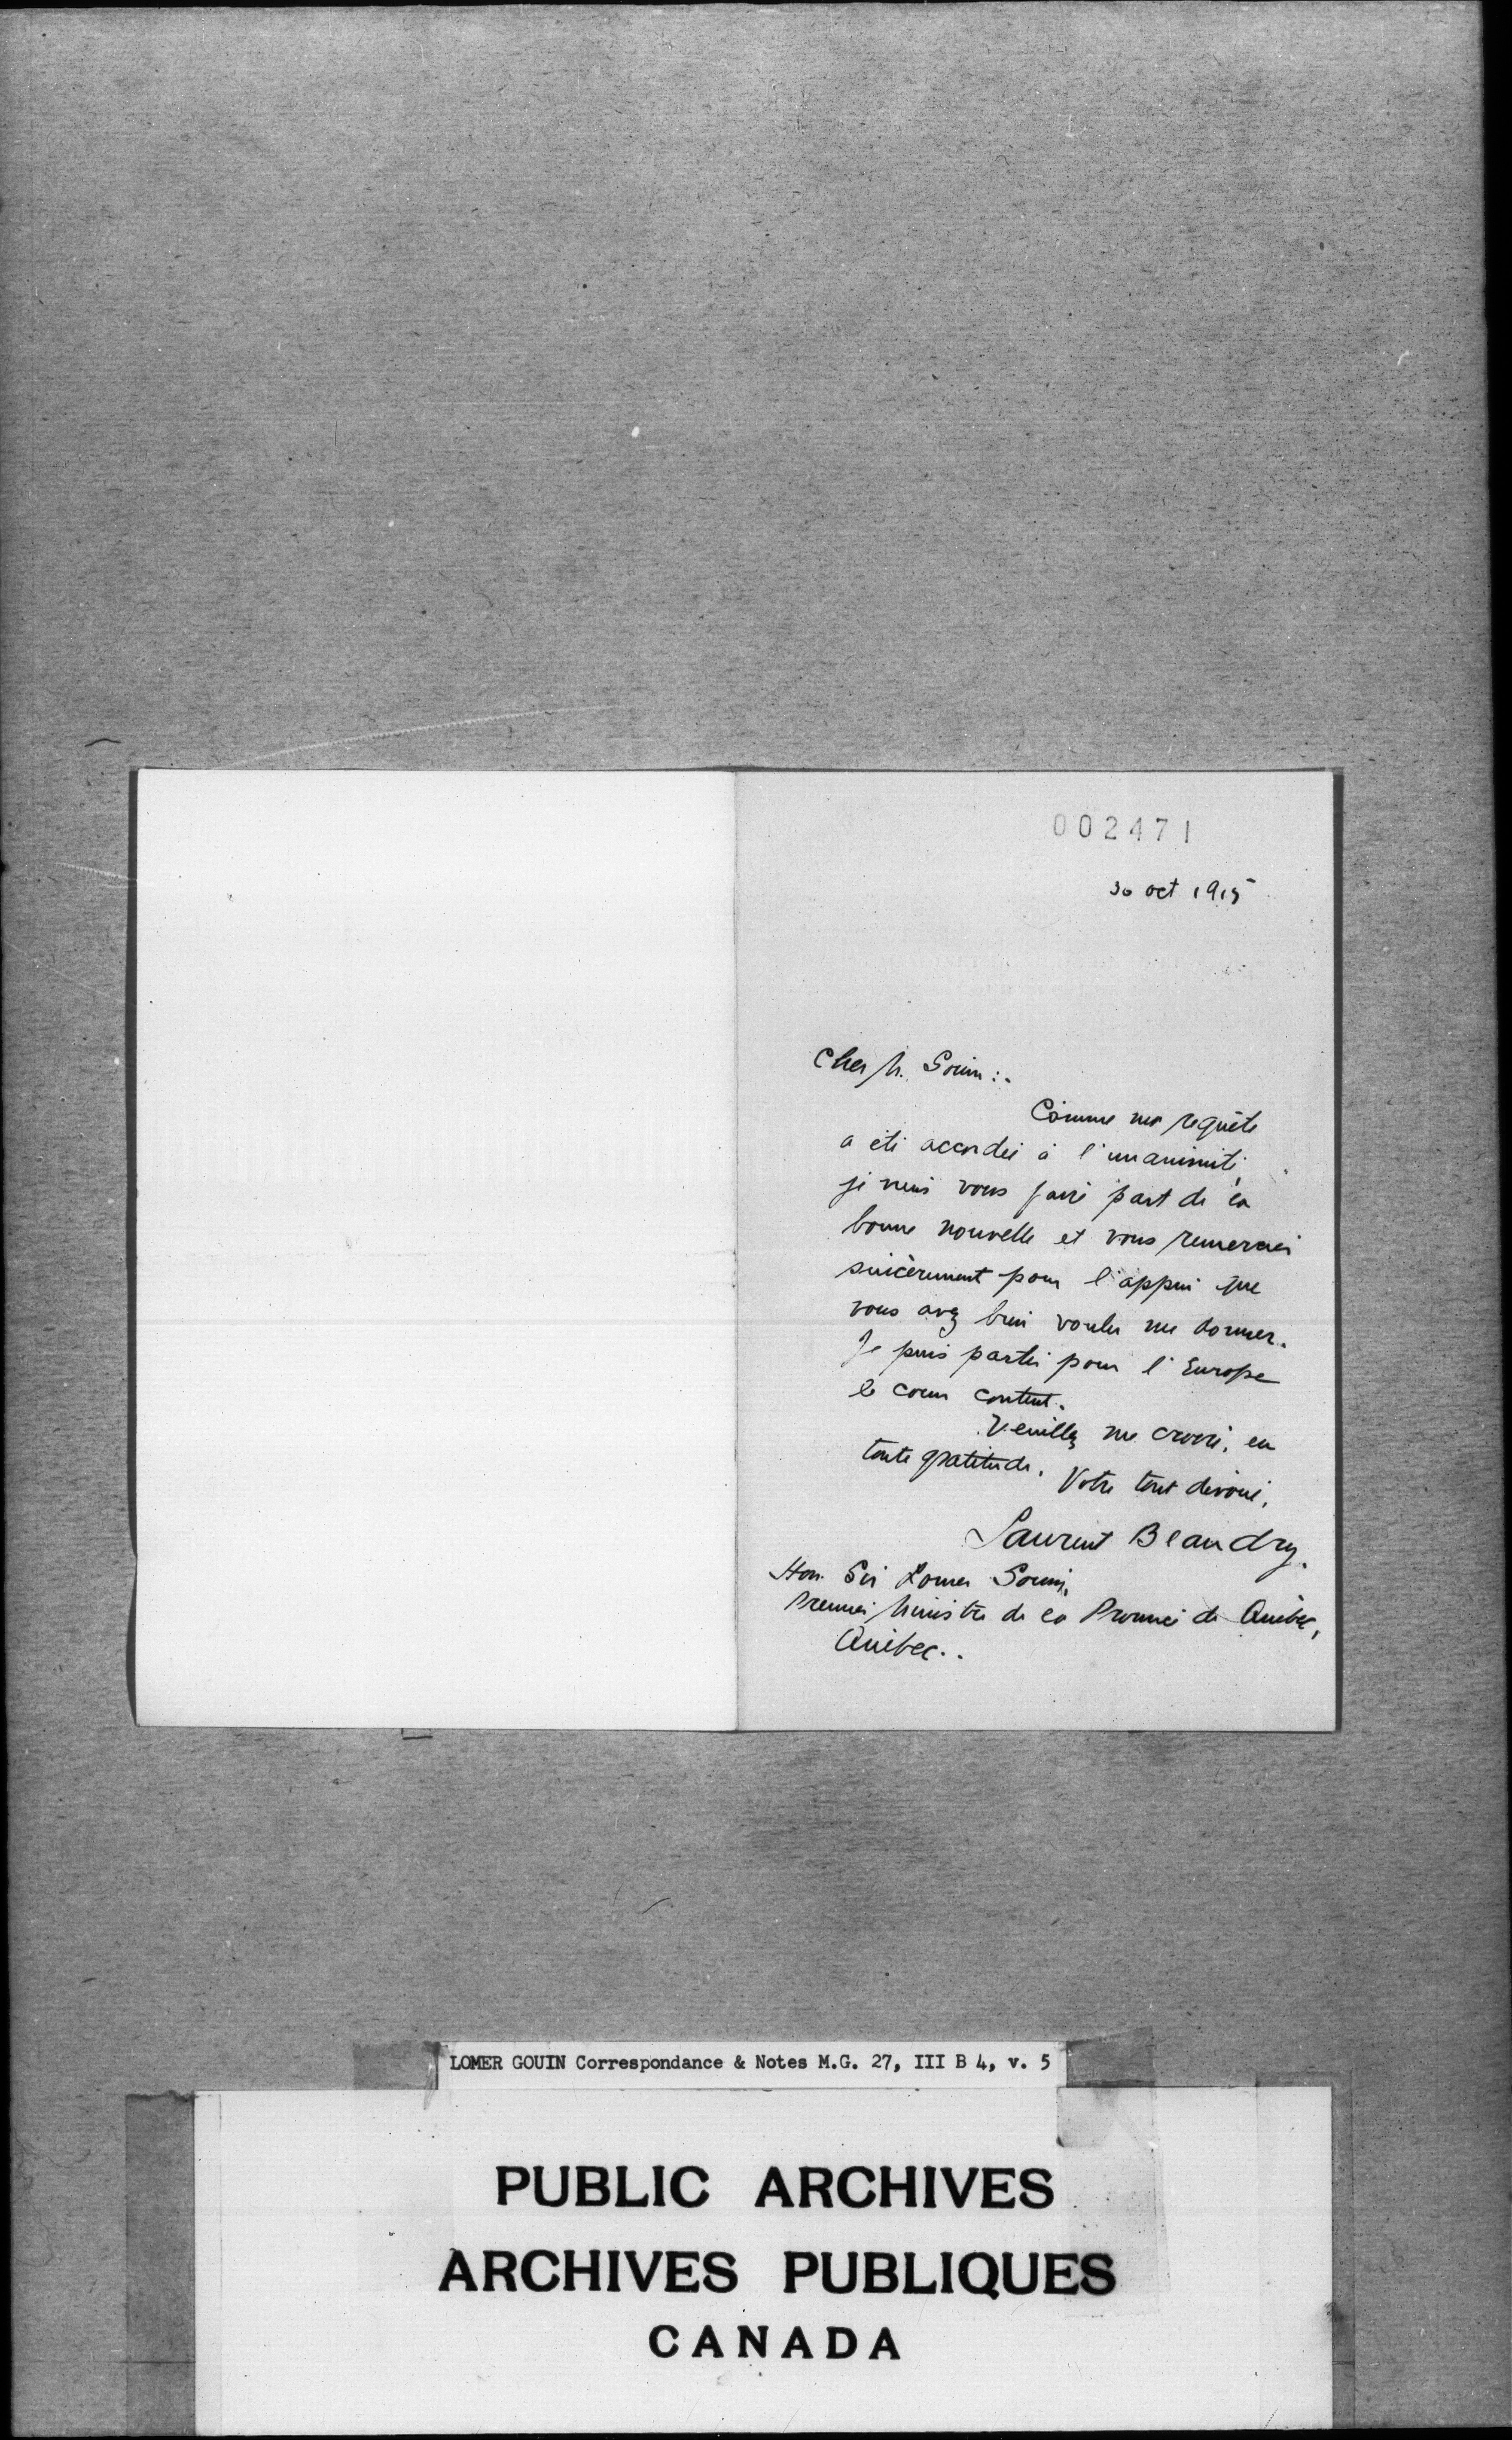 002471
30 oct 1915
Cher M. Gouin :.
Comme ma requête
a été accordée à l'unanimité,
je viens vous faire part de la
bonne nouvelle et vous remercier
sincèrement pour l'appui que
vous avez bien voulu me donner.
Je puis partir pour l'Europe
le coeur content.
Veuillez me croire, en
toute gratitude,
Votre tout dévoué,
Laurent Beaudry.
Hon. Sir Lomer Gouin,
Premier Ministre de la Province de Québec,
Québec..
LOMER GOUIN Correspondance & Notes M.G. 27, III B 4, v. 5
PUBLIC ARCHIVES
ARCHIVES PUBLIQUES
CANADA